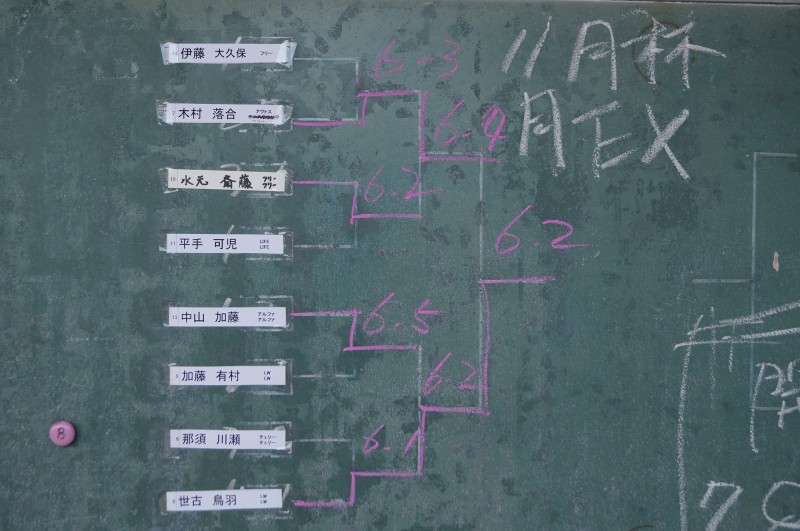 伊藤 大久保 フリー
木村 落合 アウトス
水元 斎藤 フリー フリー
平手 可児 LIFE LIFE
中山 加藤 アルファ アルファ
加藤 有村 LW LW
那須 川瀬 チェリー チェリー
世古 鳥羽 LW LW
6-3
6.4
6.2
6.2
6.5
6.2
6.1
11月杯
月EX
8